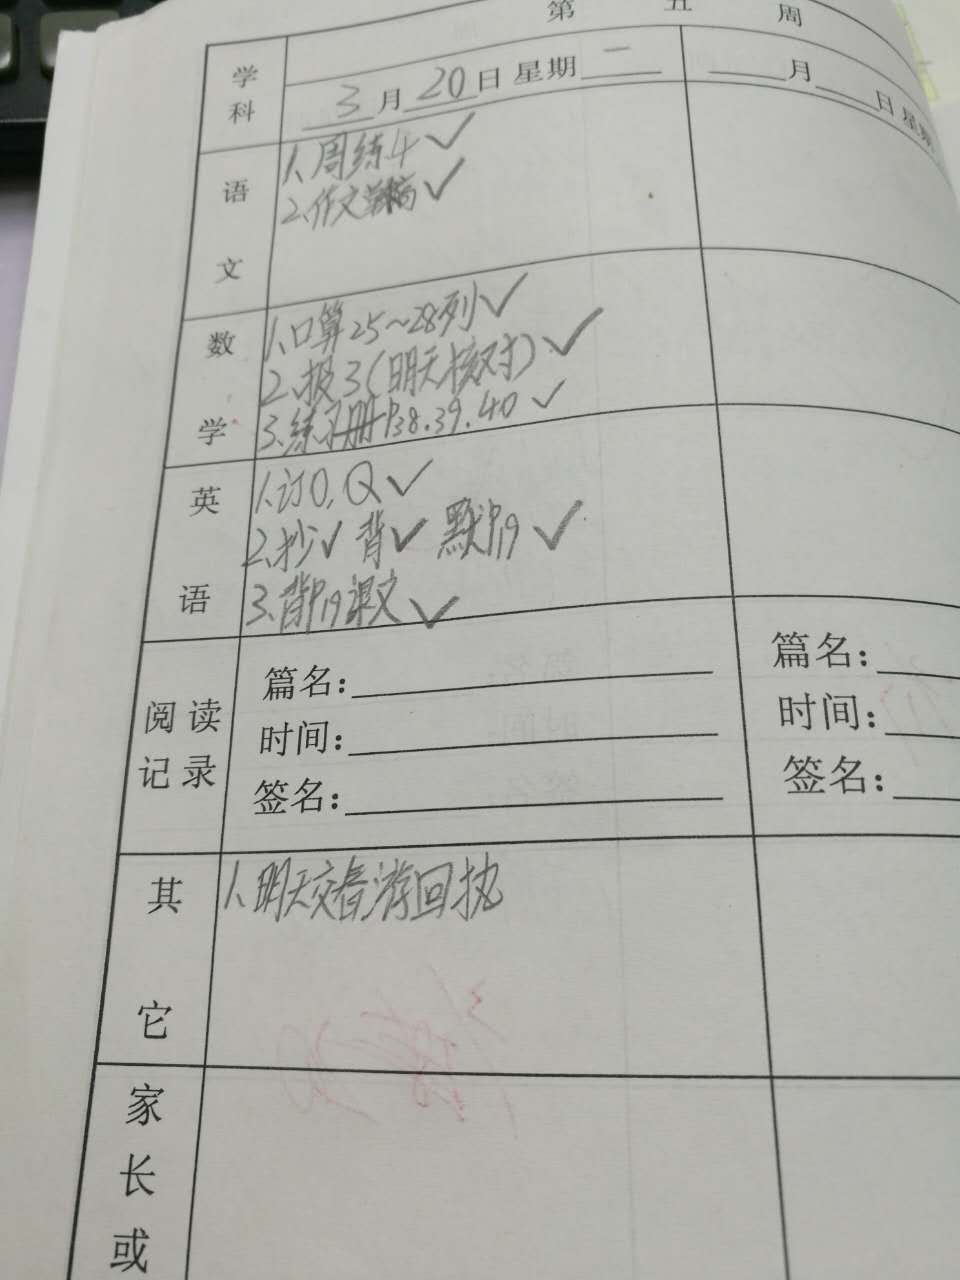 第 五 周
学科
3月20日 星期一
月 日 星期
语文
1、周练4✓
2、作文草稿✓
数学
1、口算25~28列✓
2、报3(明天核对)✓
3、练习册P38.39.40✓
英语
1、订O,Q✓
2、抄✓ 背✓ 默P19✓
3、背P19课文✓
阅读记录
篇名:
时间:
签名:
篇名:
时间:
签名:
其它
1、明天交春游回执
家长或